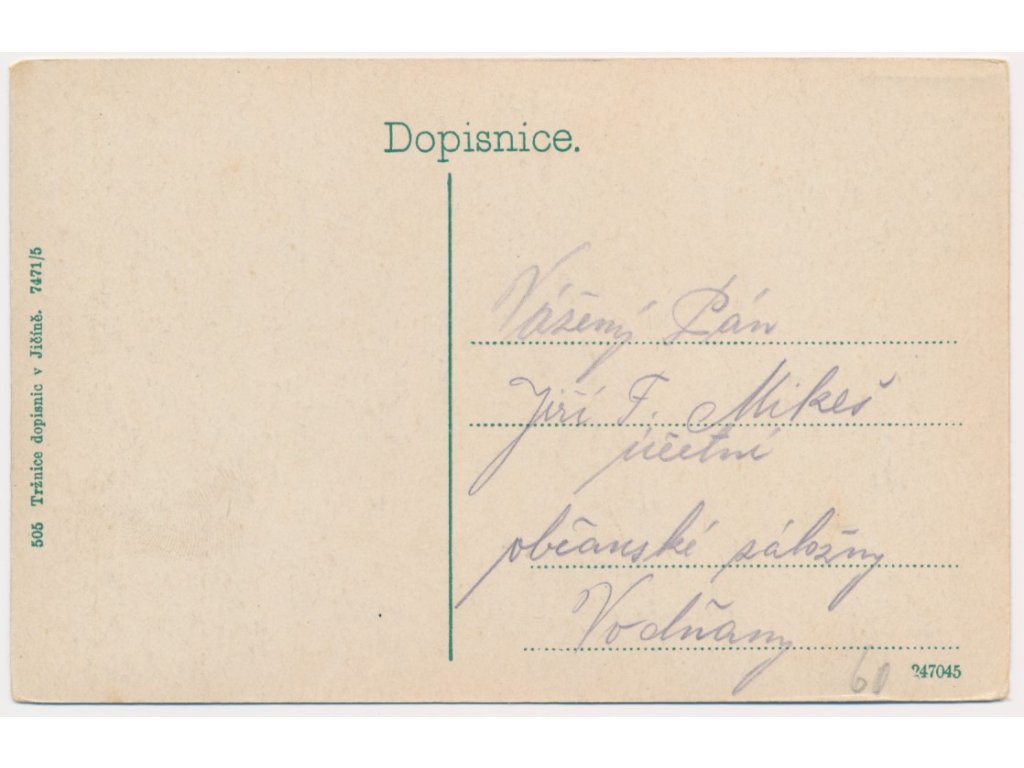 Dopisnice.
505 Tržnice dopisnic v Jičíně. 7471/5
Vážený Pán
Jiří F. Mikeš
účetní
občanské záložny
Vodňany
60
247045